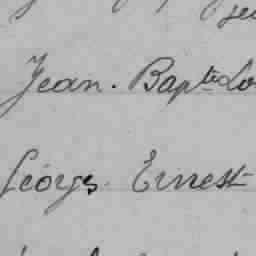 Jean. Bapte
Georgs. Ernest